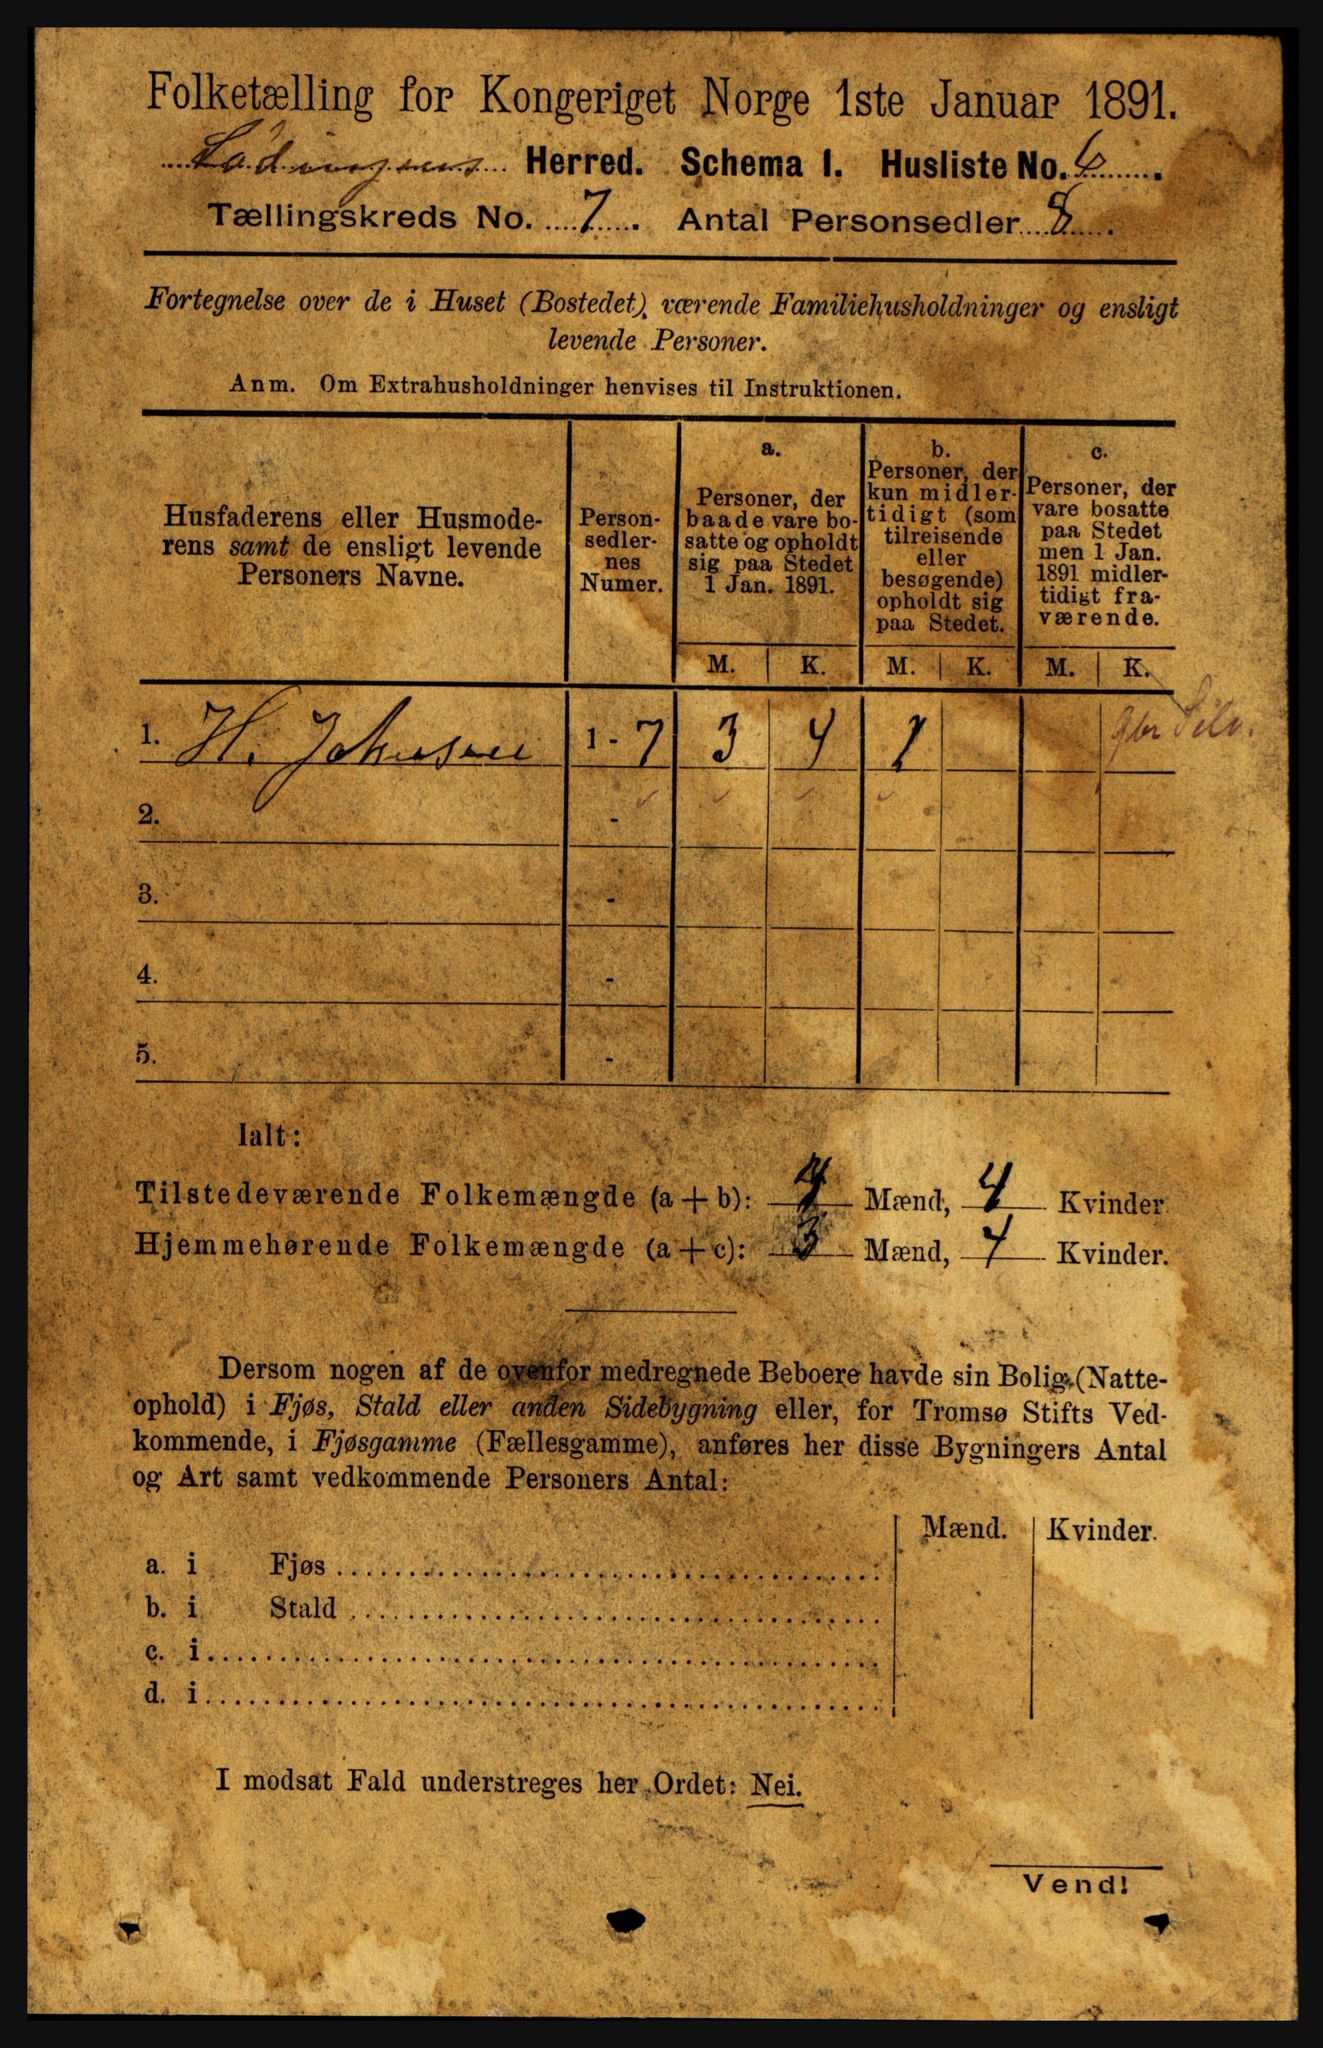 Folketælling for Kongeriget Norge 1ste Januar 1891.
Lødingens Herred. Schema 1. Husliste No. 6.
Tællingskreds No. 7. Antal Personsedler 8.
Fortegnelse over de i Huset (Bostedet) værende Familiehusholdninger og ensligt
levende Personer.
Anm. Om Extrahusholdninger henvises til Instruktionen.
Husfaderens eller Husmode-
rens samt de ensligt levende
Personers Navne.
Person-
sedler-
nes
Numer.
a.
Personer, der
baade vare bo-
satte og opholdt
sig paa Stedet
1 Jan. 1891.
b.
Personer, der
kun midler-
tidigt (som
tilreisende
eller
besøgende)
opholdt sig
paa Stedet.
c.
Personer, der
vare bosatte
paa Stedet
men 1 Jan.
1891 midler-
tidigt fra-
værende.
M. K. M. K. M. K.
1. H. Johnsen 1 - 7 3 4 1
2. -
3. -
4. -
5. -
Ialt:
Tilstedeværende Folkemængde (a + b): 4 Mænd, 4 Kvinder.
Hjemmehørende Folkemængde (a + c): 3 Mænd, 4 Kvinder.
Dersom nogen af de ovenfor medregnede Beboere havde sin Bolig (Natte-
ophold) i Fjøs, Stald eller anden Sidebygning eller, for Tromsø Stifts Ved-
kommende, i Fjøsgamme (Fællesgamme), anføres her disse Bygningers Antal
og Art samt vedkommende Personers Antal:
Mænd. Kvinder.
a. i Fjøs
b. i Stald
c. i
d. i
I modsat Fald understreges her Ordet: Nei.
Vend!